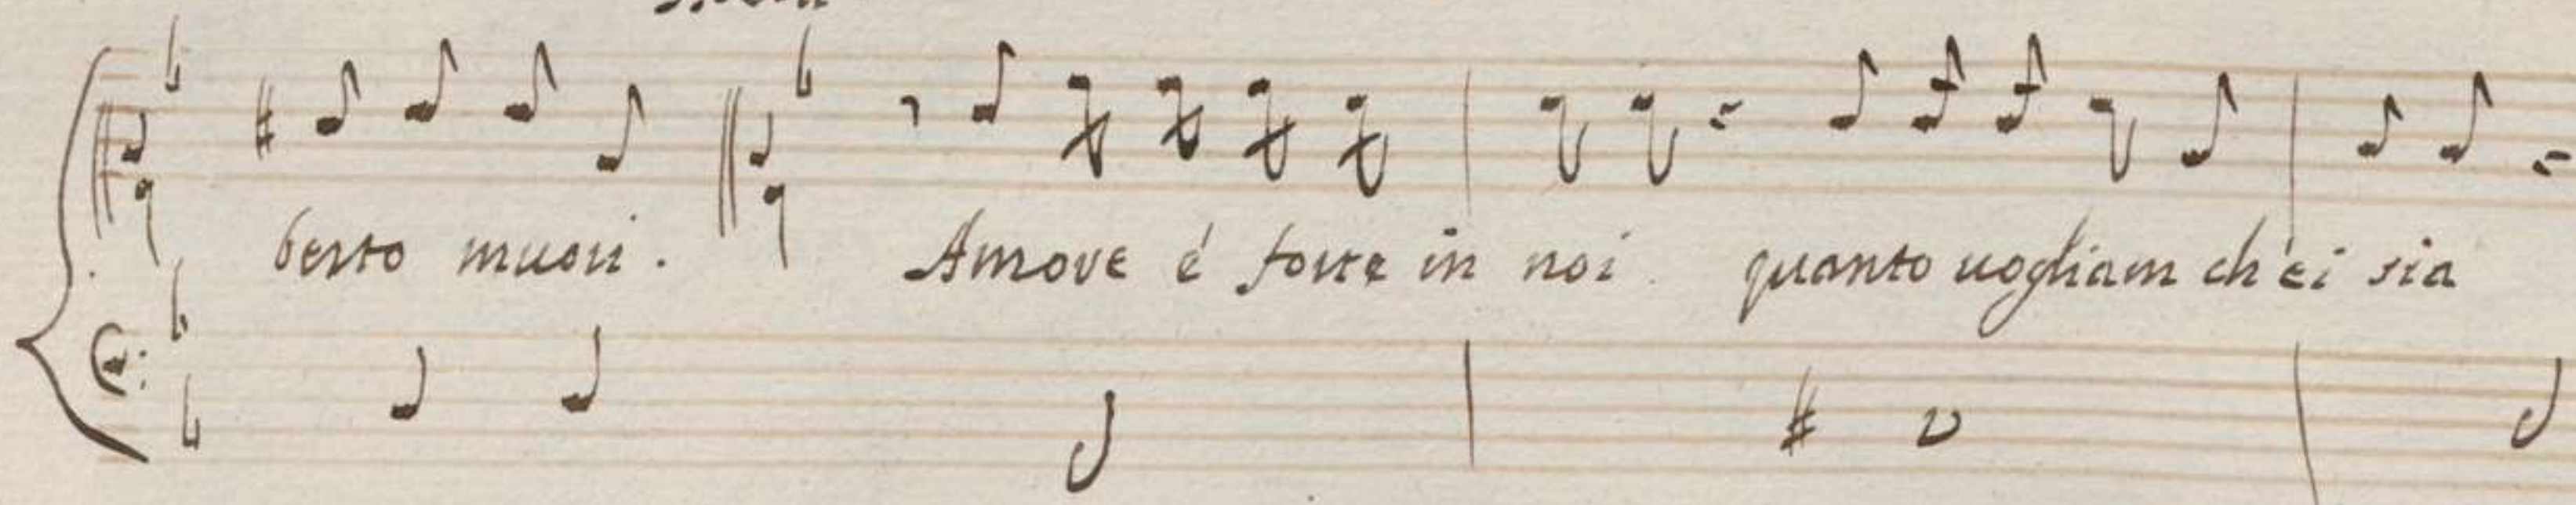 berto muori. Amore é forte in noi. quanto uogliam ch'ei sia